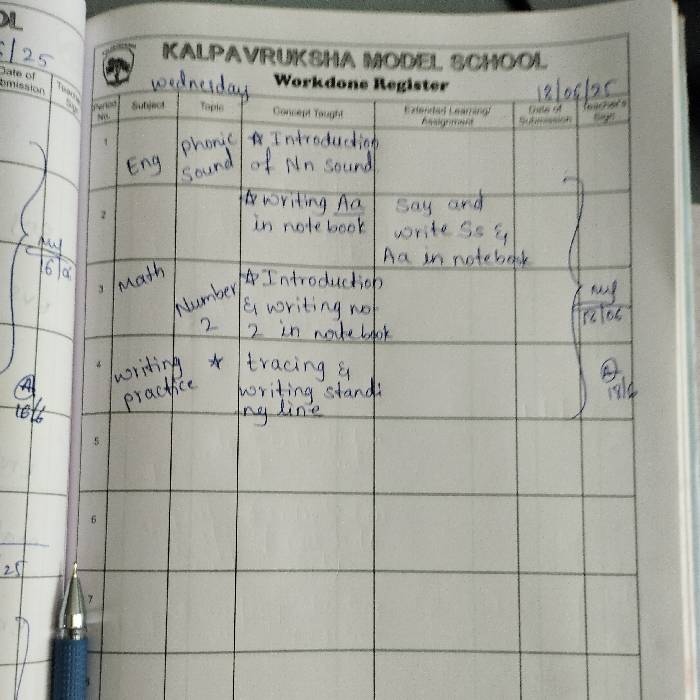 OL
6/25
Date of
bmission
KALPAVRUKSHA MODEL SCHOOL
Workdone Register
wednesday
18/06/25
Period No.
Subject
Topic
Concept Taught
Extended Learning/ Assignment
Date of Submission
Teacher's Sign
1
Eng
phonic
sound
* Introduction
of Nn sound
2
* writing Aa
in notebook
Say and
write Ss &
Aa in notebook
3
Math
Number
2
* Introduction
& writing no
2 in notebook
18/06
4
writing
practice
*
tracing &
writing standi
ng line
A
18/6
5
6
7
16/6
A
16/6
25